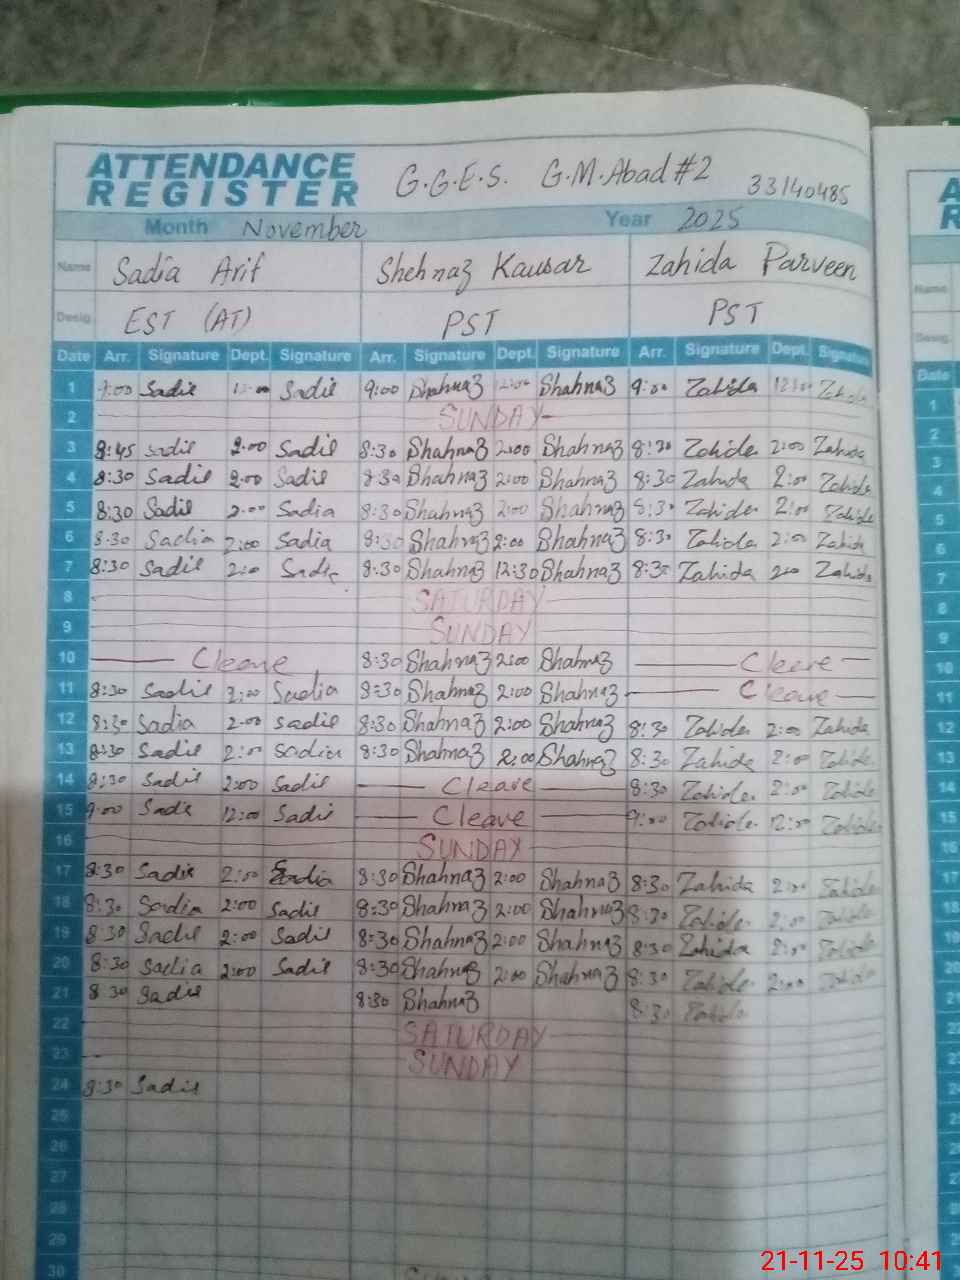 ATTENDANCE REGISTER G.G.E.S. G.M.Abad #2 33140485
Month November Year 2025
Name Sadia Arif Shehnaz Kausar Zahida Parveen
Desig. EST (AT) PST PST
Date Arr. Signature Dept. Signature Arr. Signature Dept. Signature Arr. Signature Dept. Signature
1 9:00 Sadie Sadie 9:00 Shahnaz Shahnaz 9:00 Zahida 12:00 Zahida
2 SUNDAY
3 8:45 Sadie 2:00 Sadie 8:30 Shahnaz 2:00 Shahnaz 8:30 Zahida 2:00 Zahida
4 8:30 Sadie 2:00 Sadie 8:30 Shahnaz 2:00 Shahnaz 8:30 Zahida 2:00 Zahida
5 8:30 Sadie 2:00 Sadia 8:30 Shahnaz 2:00 Shahnaz 8:30 Zahida 2:00 Zahida
6 8:30 Sadia 2:00 Sadia 8:30 Shahnaz 2:00 Shahnaz 8:30 Zahida 2:00 Zahida
7 8:30 Sadie 2:00 Sadie 8:30 Shahnaz 12:30 Shahnaz 8:30 Zahida 2:00 Zahida
8 SATURDAY
9 SUNDAY
10 Cleave 8:30 Shahnaz 2:00 Shahnaz Cleave
11 8:30 Sadie 2:00 Sadia 8:30 Shahnaz 2:00 Shahnaz Cleave
12 8:30 Sadia 2:00 Sadie 8:30 Shahnaz 2:00 Shahnaz 8:30 Zahida 2:00 Zahida
13 8:30 Sadie 2:00 Sadia 8:30 Shahnaz 2:00 Shahnaz 8:30 Zahida 2:00 Zahida
14 8:30 Sadie 2:00 Sadie Cleave 8:30 Zahida 2:00 Zahida
15 9:00 Sadie 12:00 Sadie Cleave 9:00 Zahida 12:00 Zahida
16 SUNDAY
17 8:30 Sadie 2:00 Sadia 8:30 Shahnaz 2:00 Shahnaz 8:30 Zahida 2:00 Zahida
18 8:30 Sadia 2:00 Sadie 8:30 Shahnaz 2:00 Shahnaz 8:30 Zahida 2:00 Zahida
19 8:30 Sadie 2:00 Sadie 8:30 Shahnaz 2:00 Shahnaz 8:30 Zahida 2:00 Zahida
20 8:30 Sadia 2:00 Sadie 8:30 Shahnaz 2:00 Shahnaz 8:30 Zahida 2:00 Zahida
21 8:30 Sadie 8:30 Shahnaz 8:30 Zahida
22 SATURDAY
23 SUNDAY
24 8:30 Sadie
25
26
27
28
29
30
21-11-25 10:41